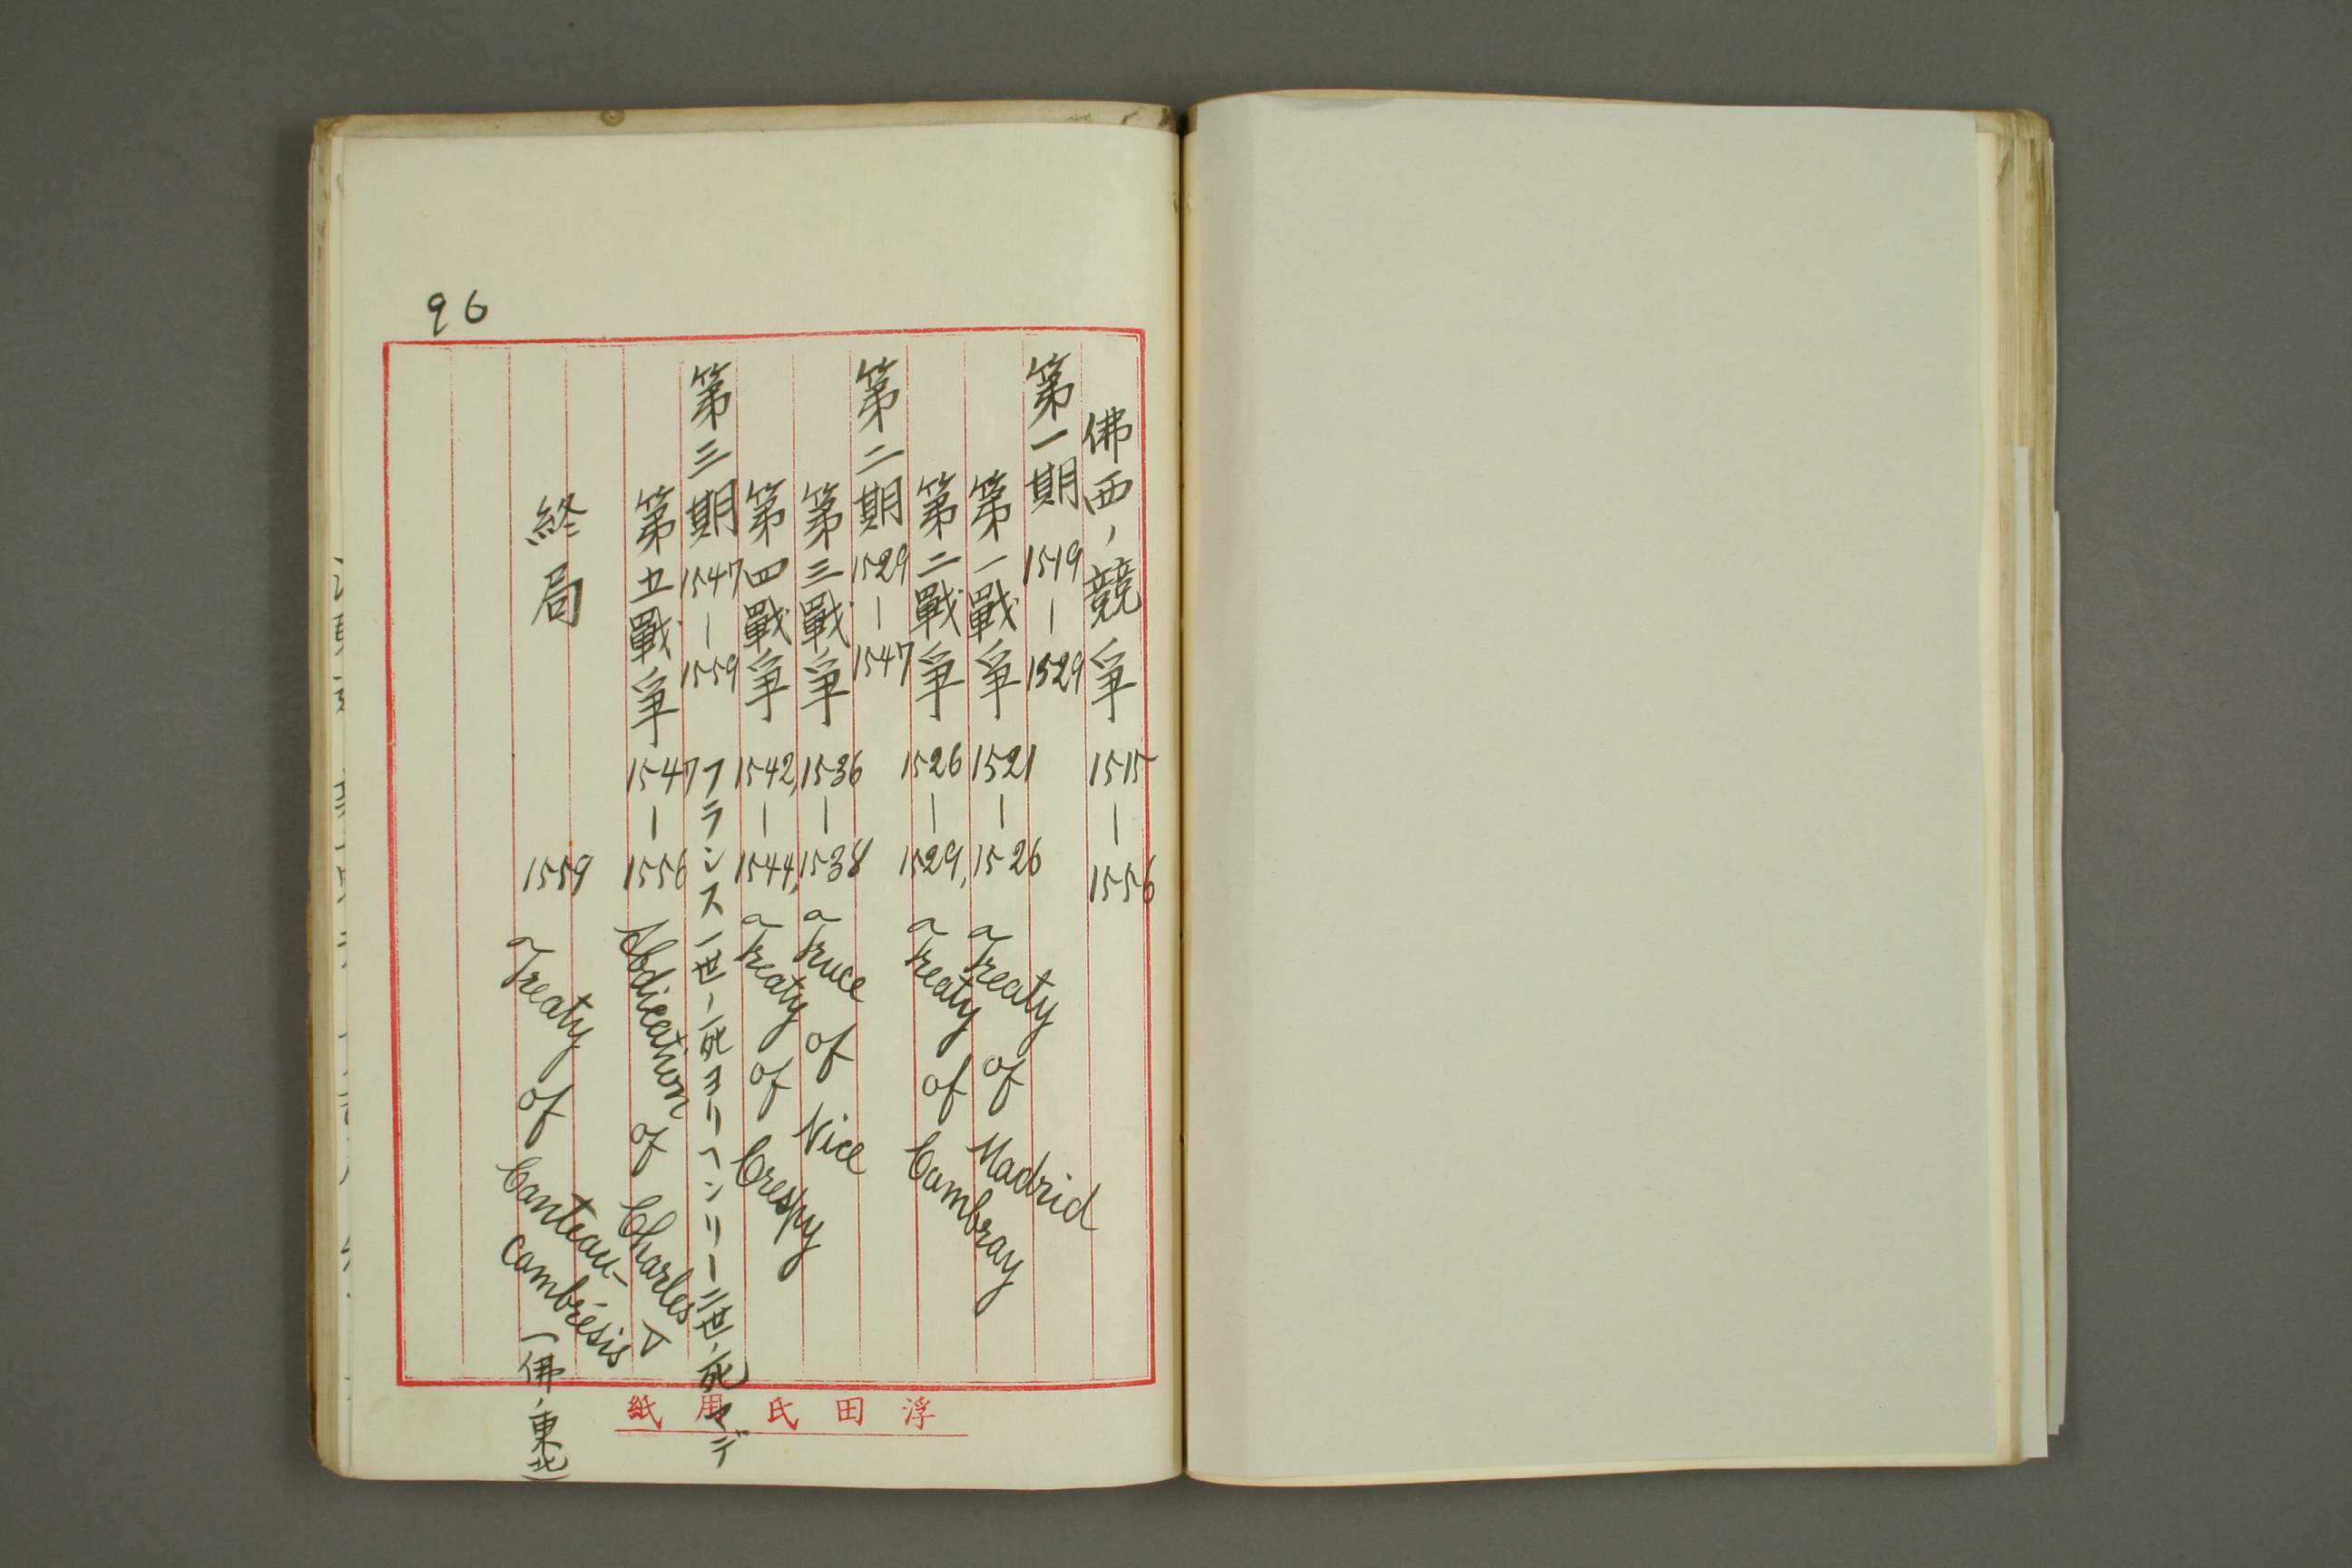 96
佛西ノ競爭 1515—1556
第一期 1519—1529
第一戰爭 1521—1526 a Treaty of Madrid
第二戰爭 1526—1529, a Treaty of Cambray
第二期 1529—1547
第三戰爭 1536—1538 a Truce of Nice
第四戰爭 1542,—1544, a Treaty of Crespy
第三期 1547—1559 フランス一世ノ死ヨリヘンリー二世ノ死マデ
第五戰爭 1547—1556 Abdication of Charles V
終局 1559 a Treaty of Canteau-cambrésis (佛ノ東北)
浮田氏用紙